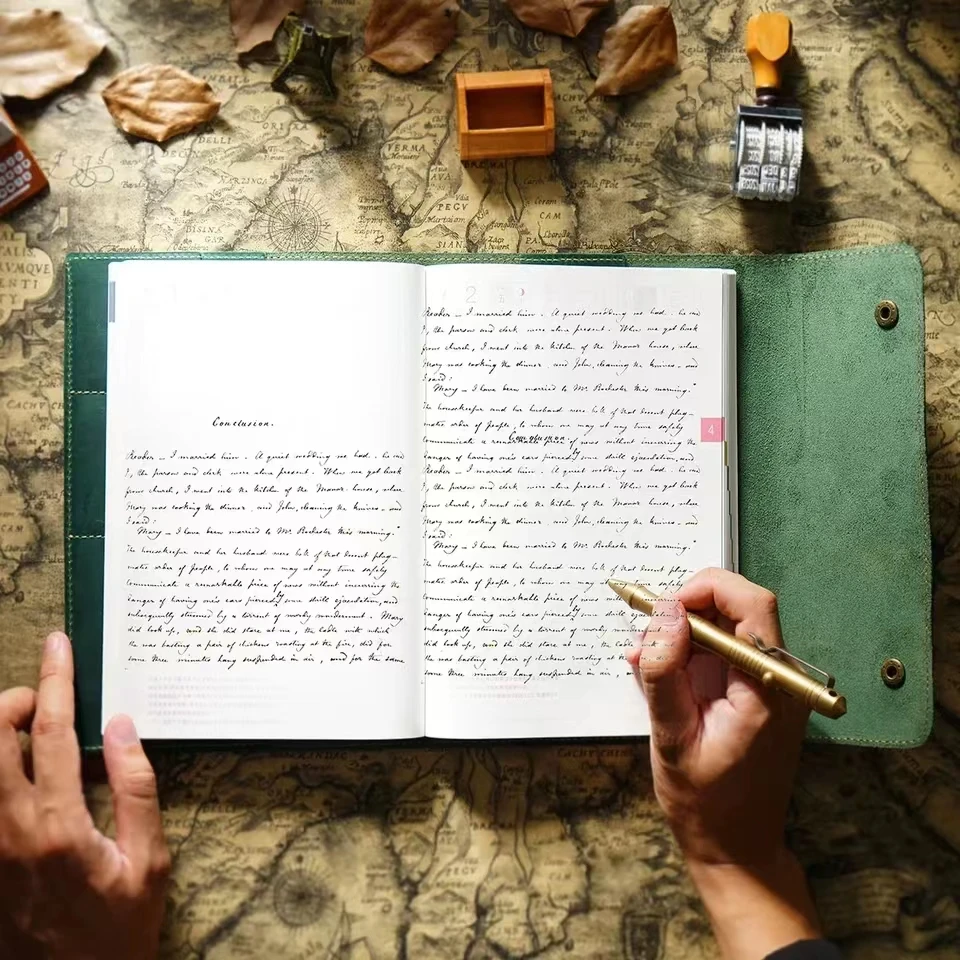 DELLI
ORIXA
VERMA
AVA
PEGV
CAM
SIAN
BISINA
CAM
2
4
Conclusion.
Reader — I married him. A quiet wedding we had: he and
I, the parson and clerk were alone present. When we got back
from church, I went into the kitchen of the Manor-house, where
Mary was cooking the dinner, and John, cleaning the knives, and
I said:
"Mary — I have been married to Mr. Rochester this morning."
The housekeeper and her husband were both of that decent phleg-
matic order of people, to whom one may at any time safely
communicate a remarkable piece of news without incurring the
danger of having one's ears pierced by some shrill ejaculation, and
subsequently stunned by a torrent of wordy wonderment. Mary
did look up, and she did stare at me, the ladle with which
she was basting a pair of chickens roasting at the fire, did for
some three minutes hang suspended in air, and for the same
Reader — I married him. A quiet wedding we had: he and
I, the parson and clerk were alone present. When we got back
from church, I went into the kitchen of the Manor house, where
Mary was cooking the dinner, and John, cleaning the knives, and
I said:
"Mary — I have been married to Mr. Rochester this morning."
The housekeeper and her husband were both of that decent phleg-
matic order of people, to whom one may at any time safely
Conclusion.
communicate a remarkable piece of news without incurring the
danger of having one's ears pierced by some shrill ejaculation, and
Reader — I married him. A quiet wedding we had: he and
I, the parson and clerk were alone present. When we got back
from church, I went into the kitchen of the Manor house, where
Mary was cooking the dinner, and John, cleaning the knives, and
I said:
"Mary — I have been married to Mr. Rochester this morning."
The housekeeper and her husband were both of that decent phleg-
matic order of people, to whom one may at any time safely
communicate a remarkable piece of news with
danger of having one's ears pierced by some shrill ejacula
subsequently stunned by a torrent of wordy wonderment.
did look up, and she did stare at me, the ladle with
she was basting a pair of chickens roasting at the
some three minutes hang suspended in air,
VERMA
PEGV